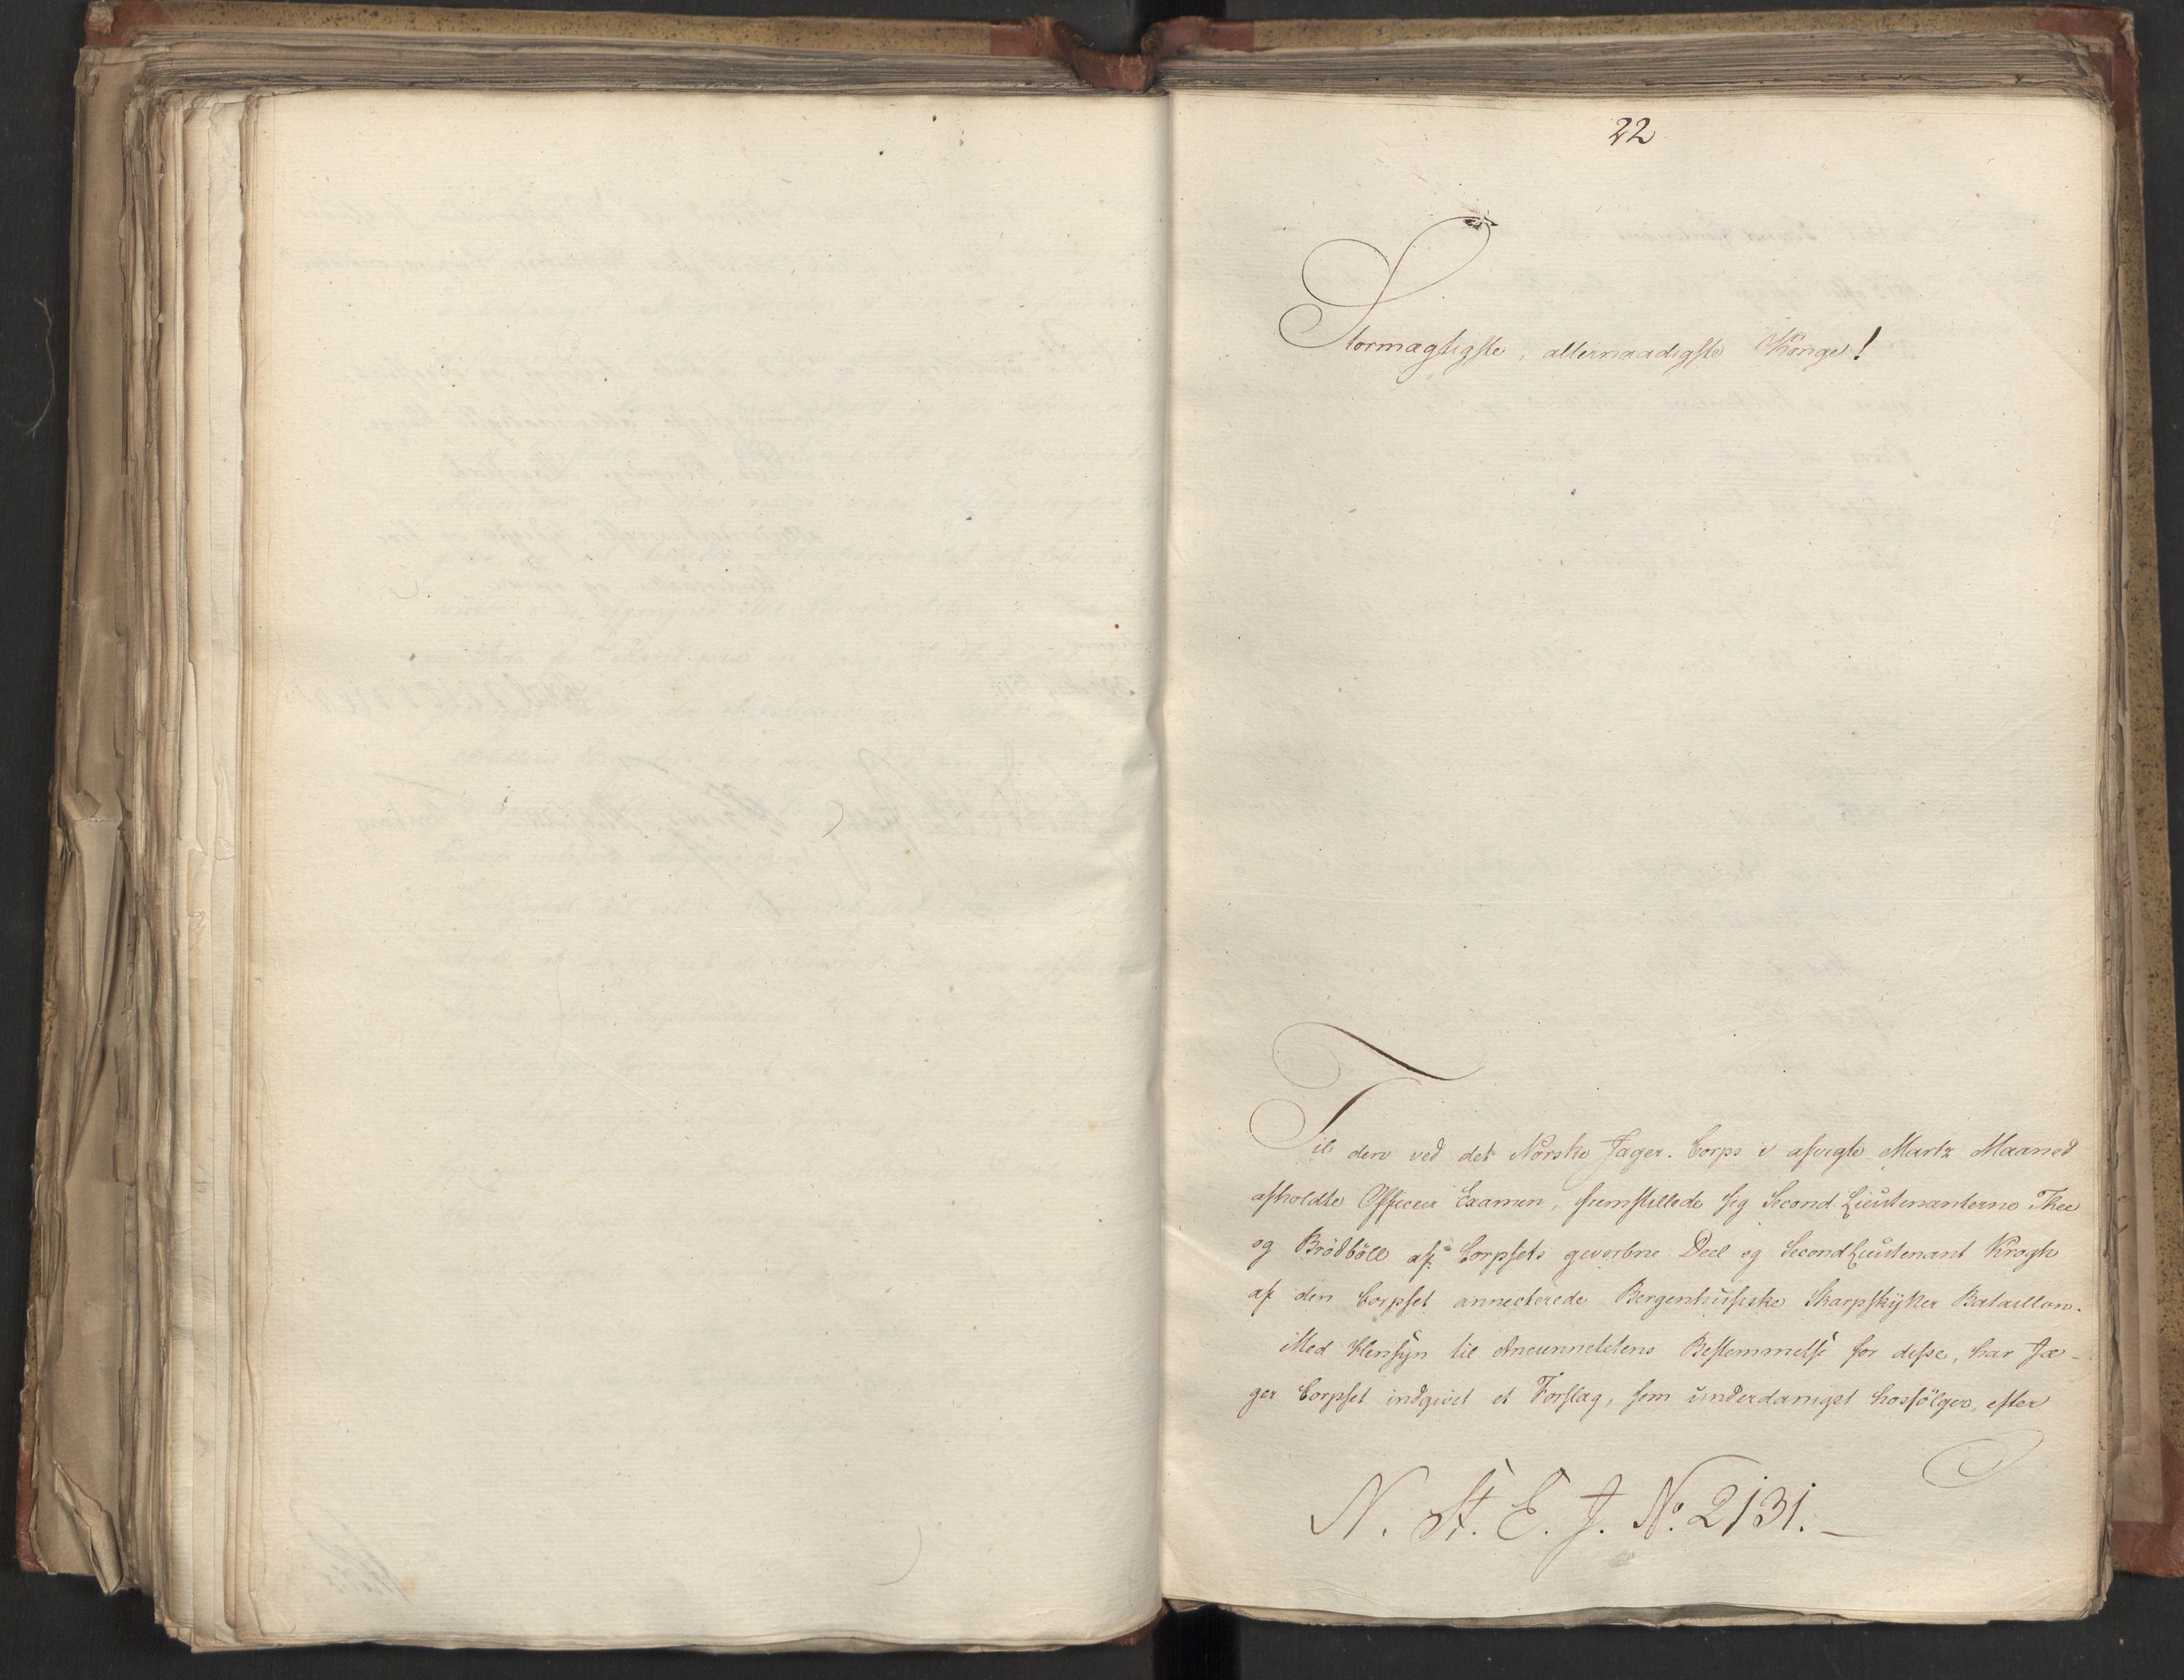 22
Stormægtigste, allernaadigste Konge!
Til den ved det Norske Jæger-Corps i afvigte Martz Maaned
afholdte Officeer Examen, fremstillede sig Second-Lieutenanterne Thee
og Brødbøll af Corpsets gevorbne Deel og SecondLieutenant Krogh
af den Corpset annecterede Bergenhusiske Skarpskytter Bataillon.
Med Hensyn til Anciennitetens Bestemmelse for disse, har Jæ-
ger Corpset indgivet et Forslag, som underdanigst hosfölger, efter
N. St. E. J. No. 2131. –